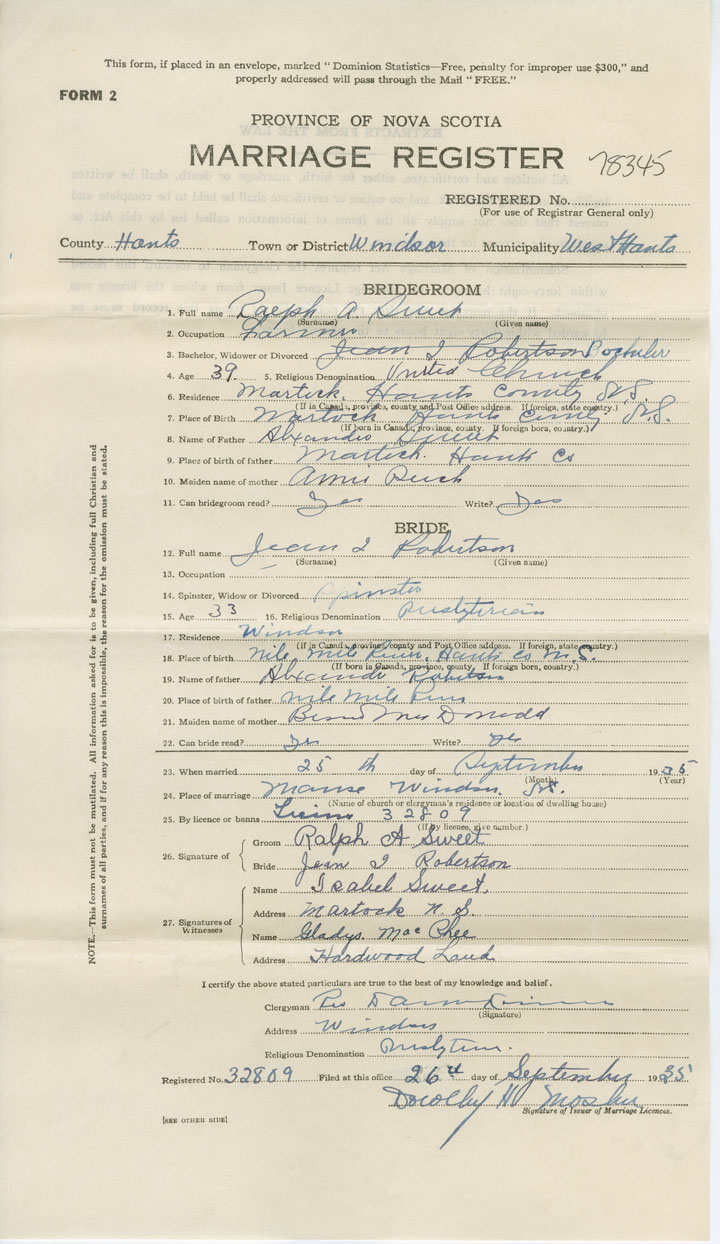 This form, if placed in an envelope, marked "Dominion Statistics—Free, penalty for improper use $300," and
properly addressed will pass through the Mail "FREE."
FORM 2
PROVINCE OF NOVA SCOTIA
MARRIAGE REGISTER 78345
REGISTERED No.
(For use of Registrar General only)
County Hants Town or District Windsor Municipality West Hants
BRIDEGROOM
1. Full name Ralph A. Sweet
(Surname) (Given name)
2. Occupation Farmer
3. Bachelor, Widower or Divorced Jean I Robertson Bachelor
4. Age 39 5. Religious Denomination United Church
6. Residence Martock, Hants County N.S.
(If in Canada, province, county and Post Office address. If foreign, state country.)
7. Place of Birth Martock Hants County N.S.
(If born in Canada, province, county. If foreign born, country.)
8. Name of Father Alexander Sweet
9. Place of birth of father Martock. Hants Co
10. Maiden name of mother Annie
11. Can bridegroom read? Yes Write? Yes
BRIDE
12. Full name Jean I Robertson
(Surname) (Given name)
13. Occupation
14. Spinster, Widow or Divorced Spinster
15. Age 33 16. Religious Denomination Presbyterian
17. Residence Windsor
(If in Canada, province, county and Post Office address. If foreign, state country.)
18. Place of birth Nile Mile Hants Co N.S.
(If born in Canada, province, county, If foreign born, country.)
19. Name of father Alexander Robertson
20. Place of birth of father Nile Mile
21. Maiden name of mother
22. Can bride read? yes Write? yes
23. When married 25 th day of September 1935
(Month) (Year)
24. Place of marriage Manse Windsor. N.S.
(Name of church or clergyman's residence or location of dwelling house)
25. By licence or banns License 32809
(If by licence, give number.)
26. Signature of
Groom Ralph A Sweet
Bride Jean I Robertson
27. Signatures of Witnesses
Name Isabel Sweet,
Address Martock N.S.
Name Gladys MacPhee
Address Hardwood Land
I certify the above stated particulars are true to the best of my knowledge and belief.
Clergyman Rev
(Signature)
Address Windsor
Religious Denomination
Registered No. 32809 Filed at this office 26th day of September 1935
Dorothy H Mosher
Signature of Issuer of Marriage Licences.
[SEE OTHER SIDE]
NOTE.—This form must not be mutilated. All information asked for is to be given, including full Christian and
surnames of all parties, and if for any reason this is impossible, the reason for the omission must be stated.